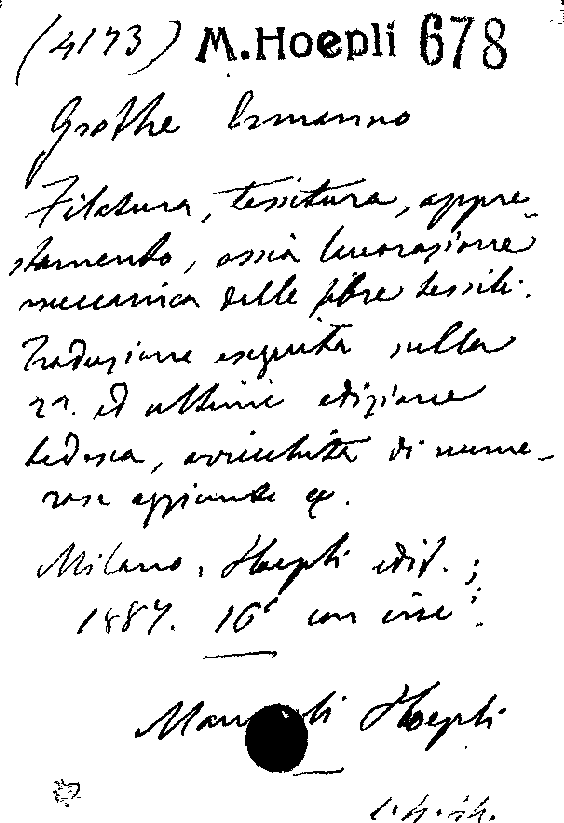 (4173) M.Hoepli 678
Grothe Ermanno
Filatura, tessitura, appre-
stamento, ossia lavorazione
meccanica delle fibre tessili.
Traduzione eseguita sulla
2a. ed ultima edizione
tedesca, arricchita di nume-
rose aggiunte &.
Milano, Hoepli edit.;
1887. 16° con inc.
Manuali Hoepli